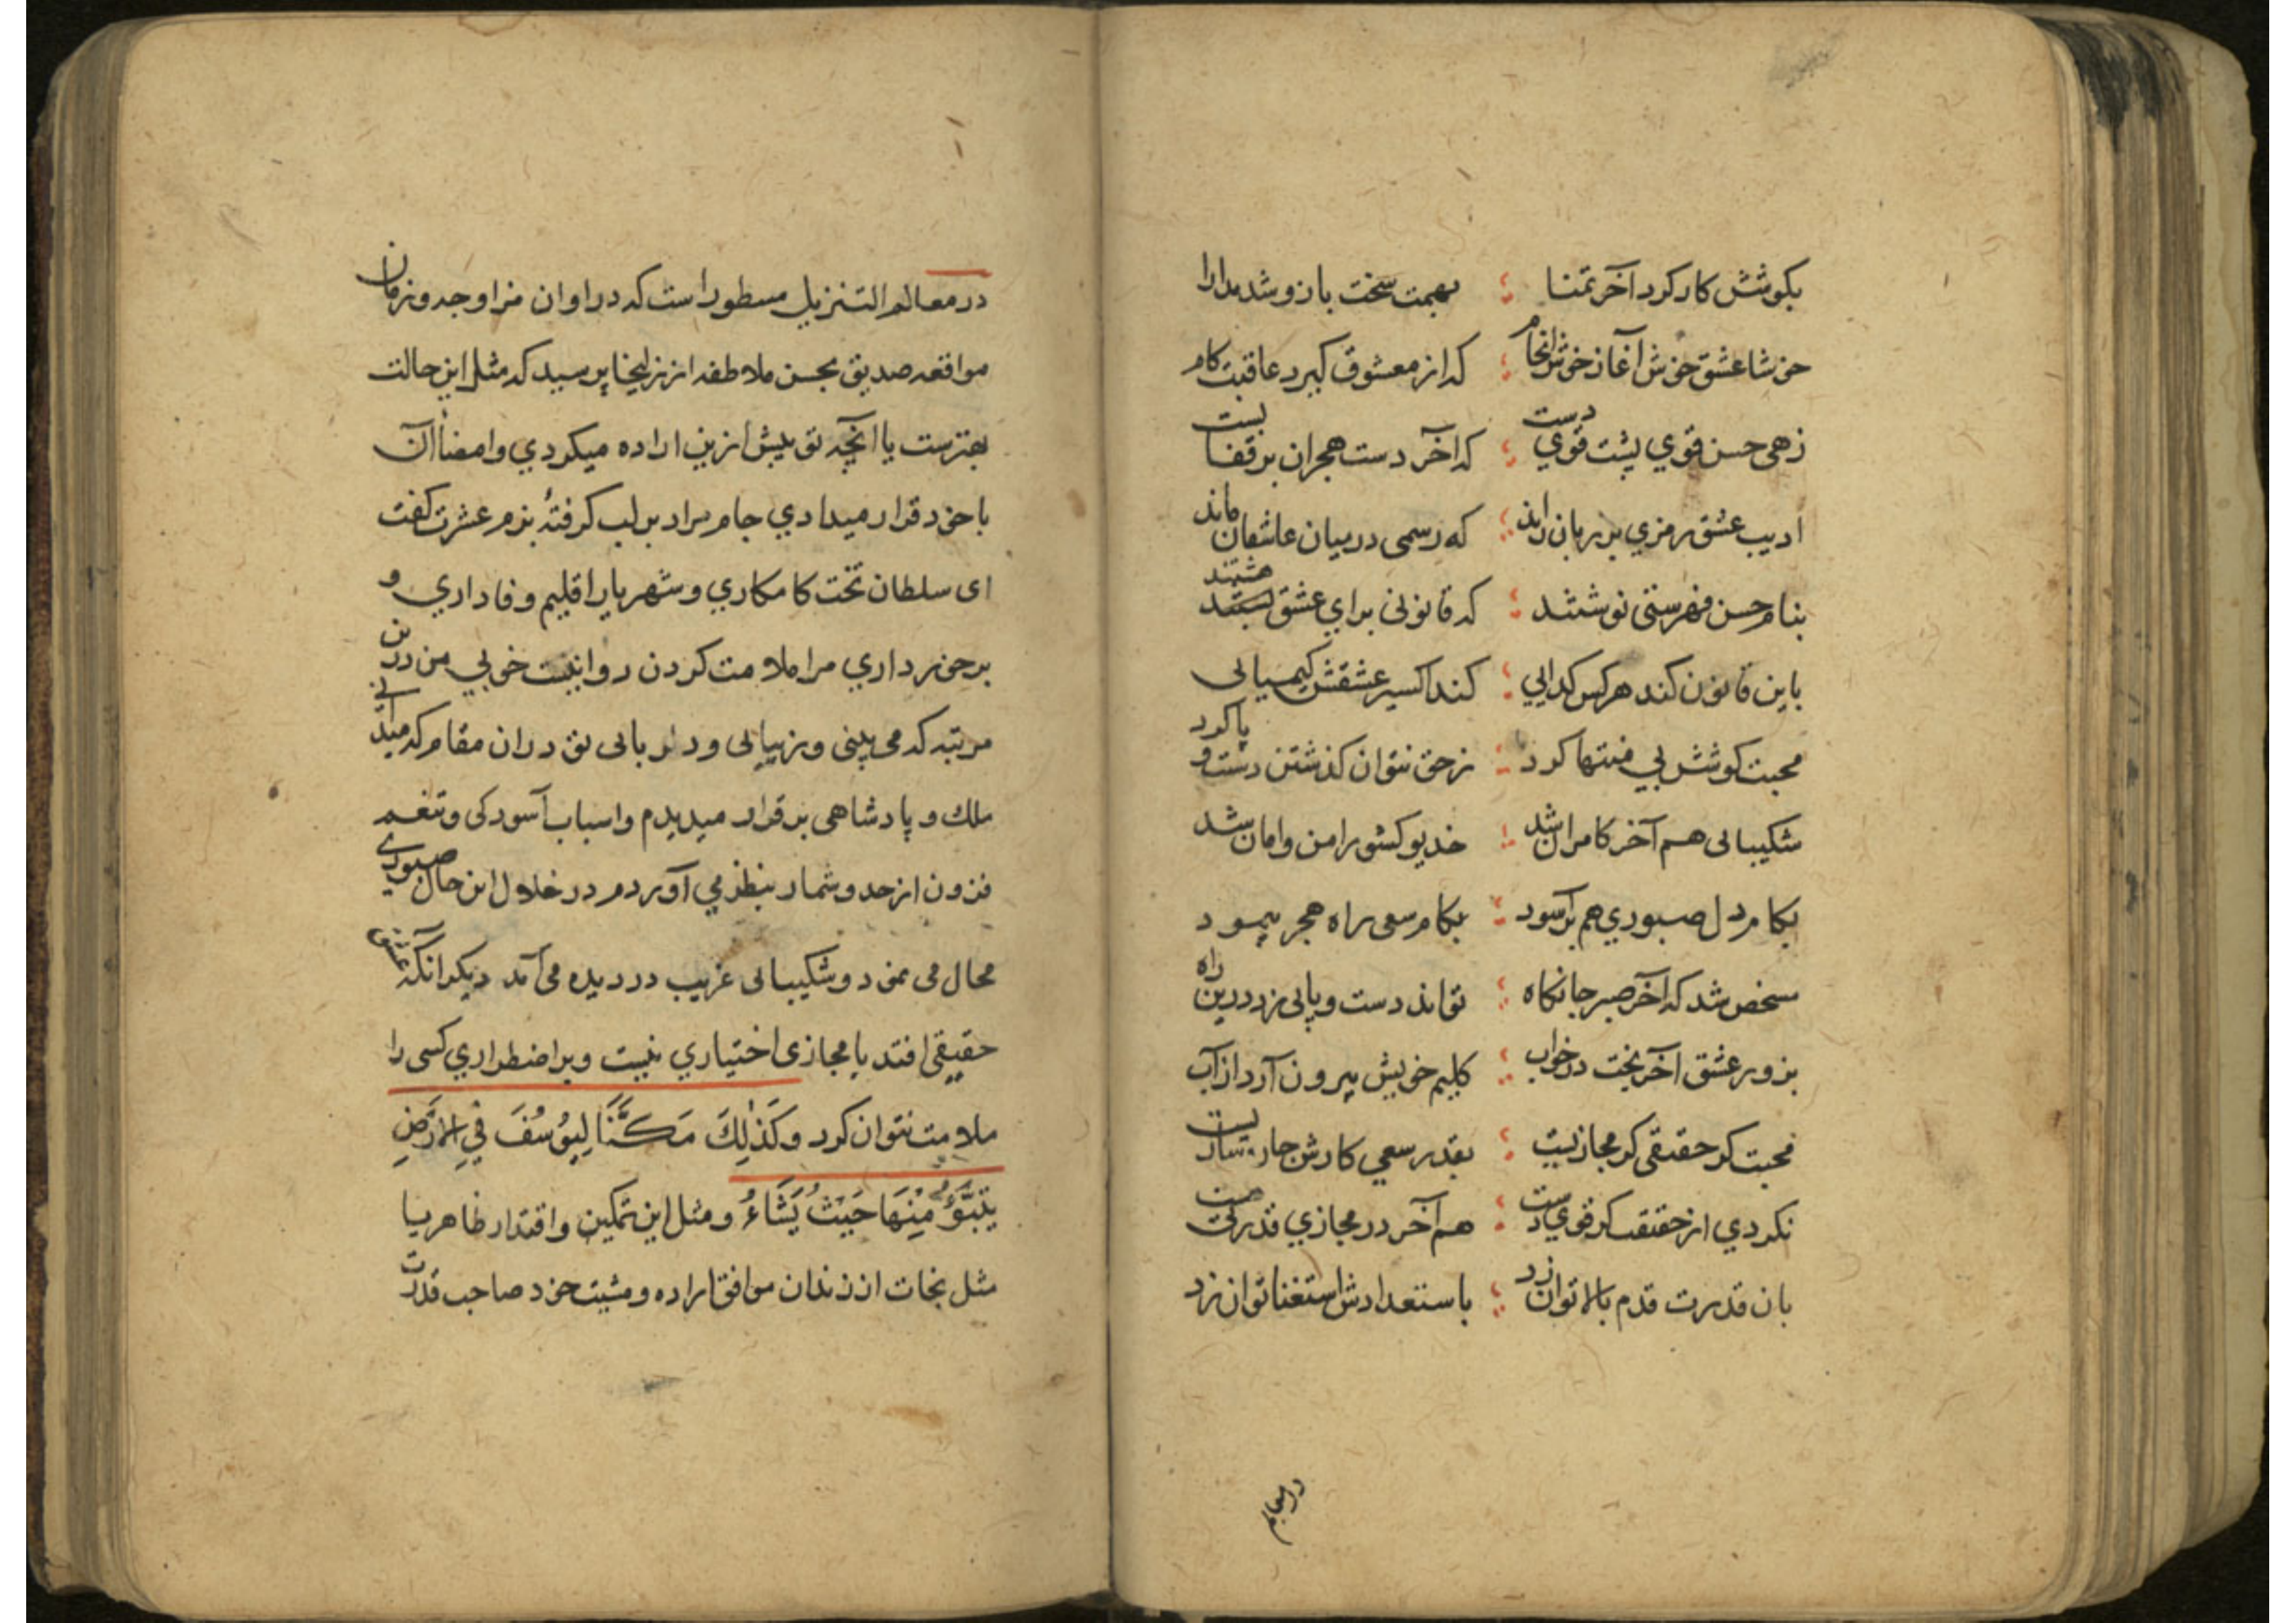 بکوشش کار کرد آخر تمنا ؛ بهمت سخت بازو شد مدارا
خوشا عشق خوش آغاز خوش انجام ؛ که از معشوق گیرد عاقبت کام
زهی حسن قوي پشت قوي دست ؛ که آخر دست هجران بر قفا بست
ادیب عشق رمزي بر زبان راند ؛ که رسمی در میان عاشقان ماند
بنام حسن فهرستی نوشتند ؛ که قانونی براي عشق هشتند
باین قانون کند هرکس کدایي ؛ کند اکسیر عشقش کیمیایی
محبت کوشش بي منتها کرد ؛ ز حق نتوان گذشتن دست و پا کرد
شکیبایی هم آخر کامران شد ؛ خدیو کشور امن و امان شد
بکام دل صبوري هم بر آسود ؛ بکام سعی راه هجر پیمود
مشخص شد که آخر صبر جانکاه ؛ تواند دست و پایی زد درین راه
بزور عشق آخر بخت در خواب ؛ کلیم خویش بیرون آرد از آب
محبت کر حقیقی کر مجازیست ؛ بقدر سعي کارش چاره سازیست
نکردي از حقیقت کر قوي دست ؛ هم آخر در مجازي قدرتت هست
بان قدرت قدم بالا توان زد ؛ باستعدادش استغنا توان زد
در معالم
در معالم التنزیل مسطور است که در اوان مزاوجه و زمان
مواقعه صدیق بحسن ملاطفه از زلیخا پرسید که مثل این حالت
بهترست یا آنچه تو پیش ازین اراده میکردي و امضاء آن
با خود قرار میدادي جام مراد بر لب کرفتۀ بزم عشرت کفت
ای سلطان تخت کامکاري و شهریار اقلیم وفاداري و
برخورداري مرا ملامت کردن روا نیست خوبي من درین
مرتبه که می بینی و زیبایی و دلربایی تو در ان مقام که میدانی
ملك و پادشاهی برقرار میدیدم و اسباب آسودکی و تنعم
فزون از حد و شمار بنظر مي آوردم در خلال این حال صبوري
محال می نمود و شکیبایی غریب در دیده می آمد دیکر آنکه عشق
حقیقی افتد یا مجازی اختیاري نیست و بر اضطراري کسی را
ملامت نتوان کرد وَكَذٰلِكَ مَكَّنَّا لِيُوسُفَ فِي الْاَرْضِ
يَتَبَوَّؤُ مِنْهَا حَيْثُ يَشَاءُ و مثل این تمکین و اقتدار ظاهر یا
مثل نجات از زندان موافق اراده و مشیت خود صاحب قدرت